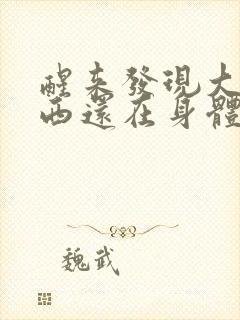 醒来發現大
西還在身體
魏武